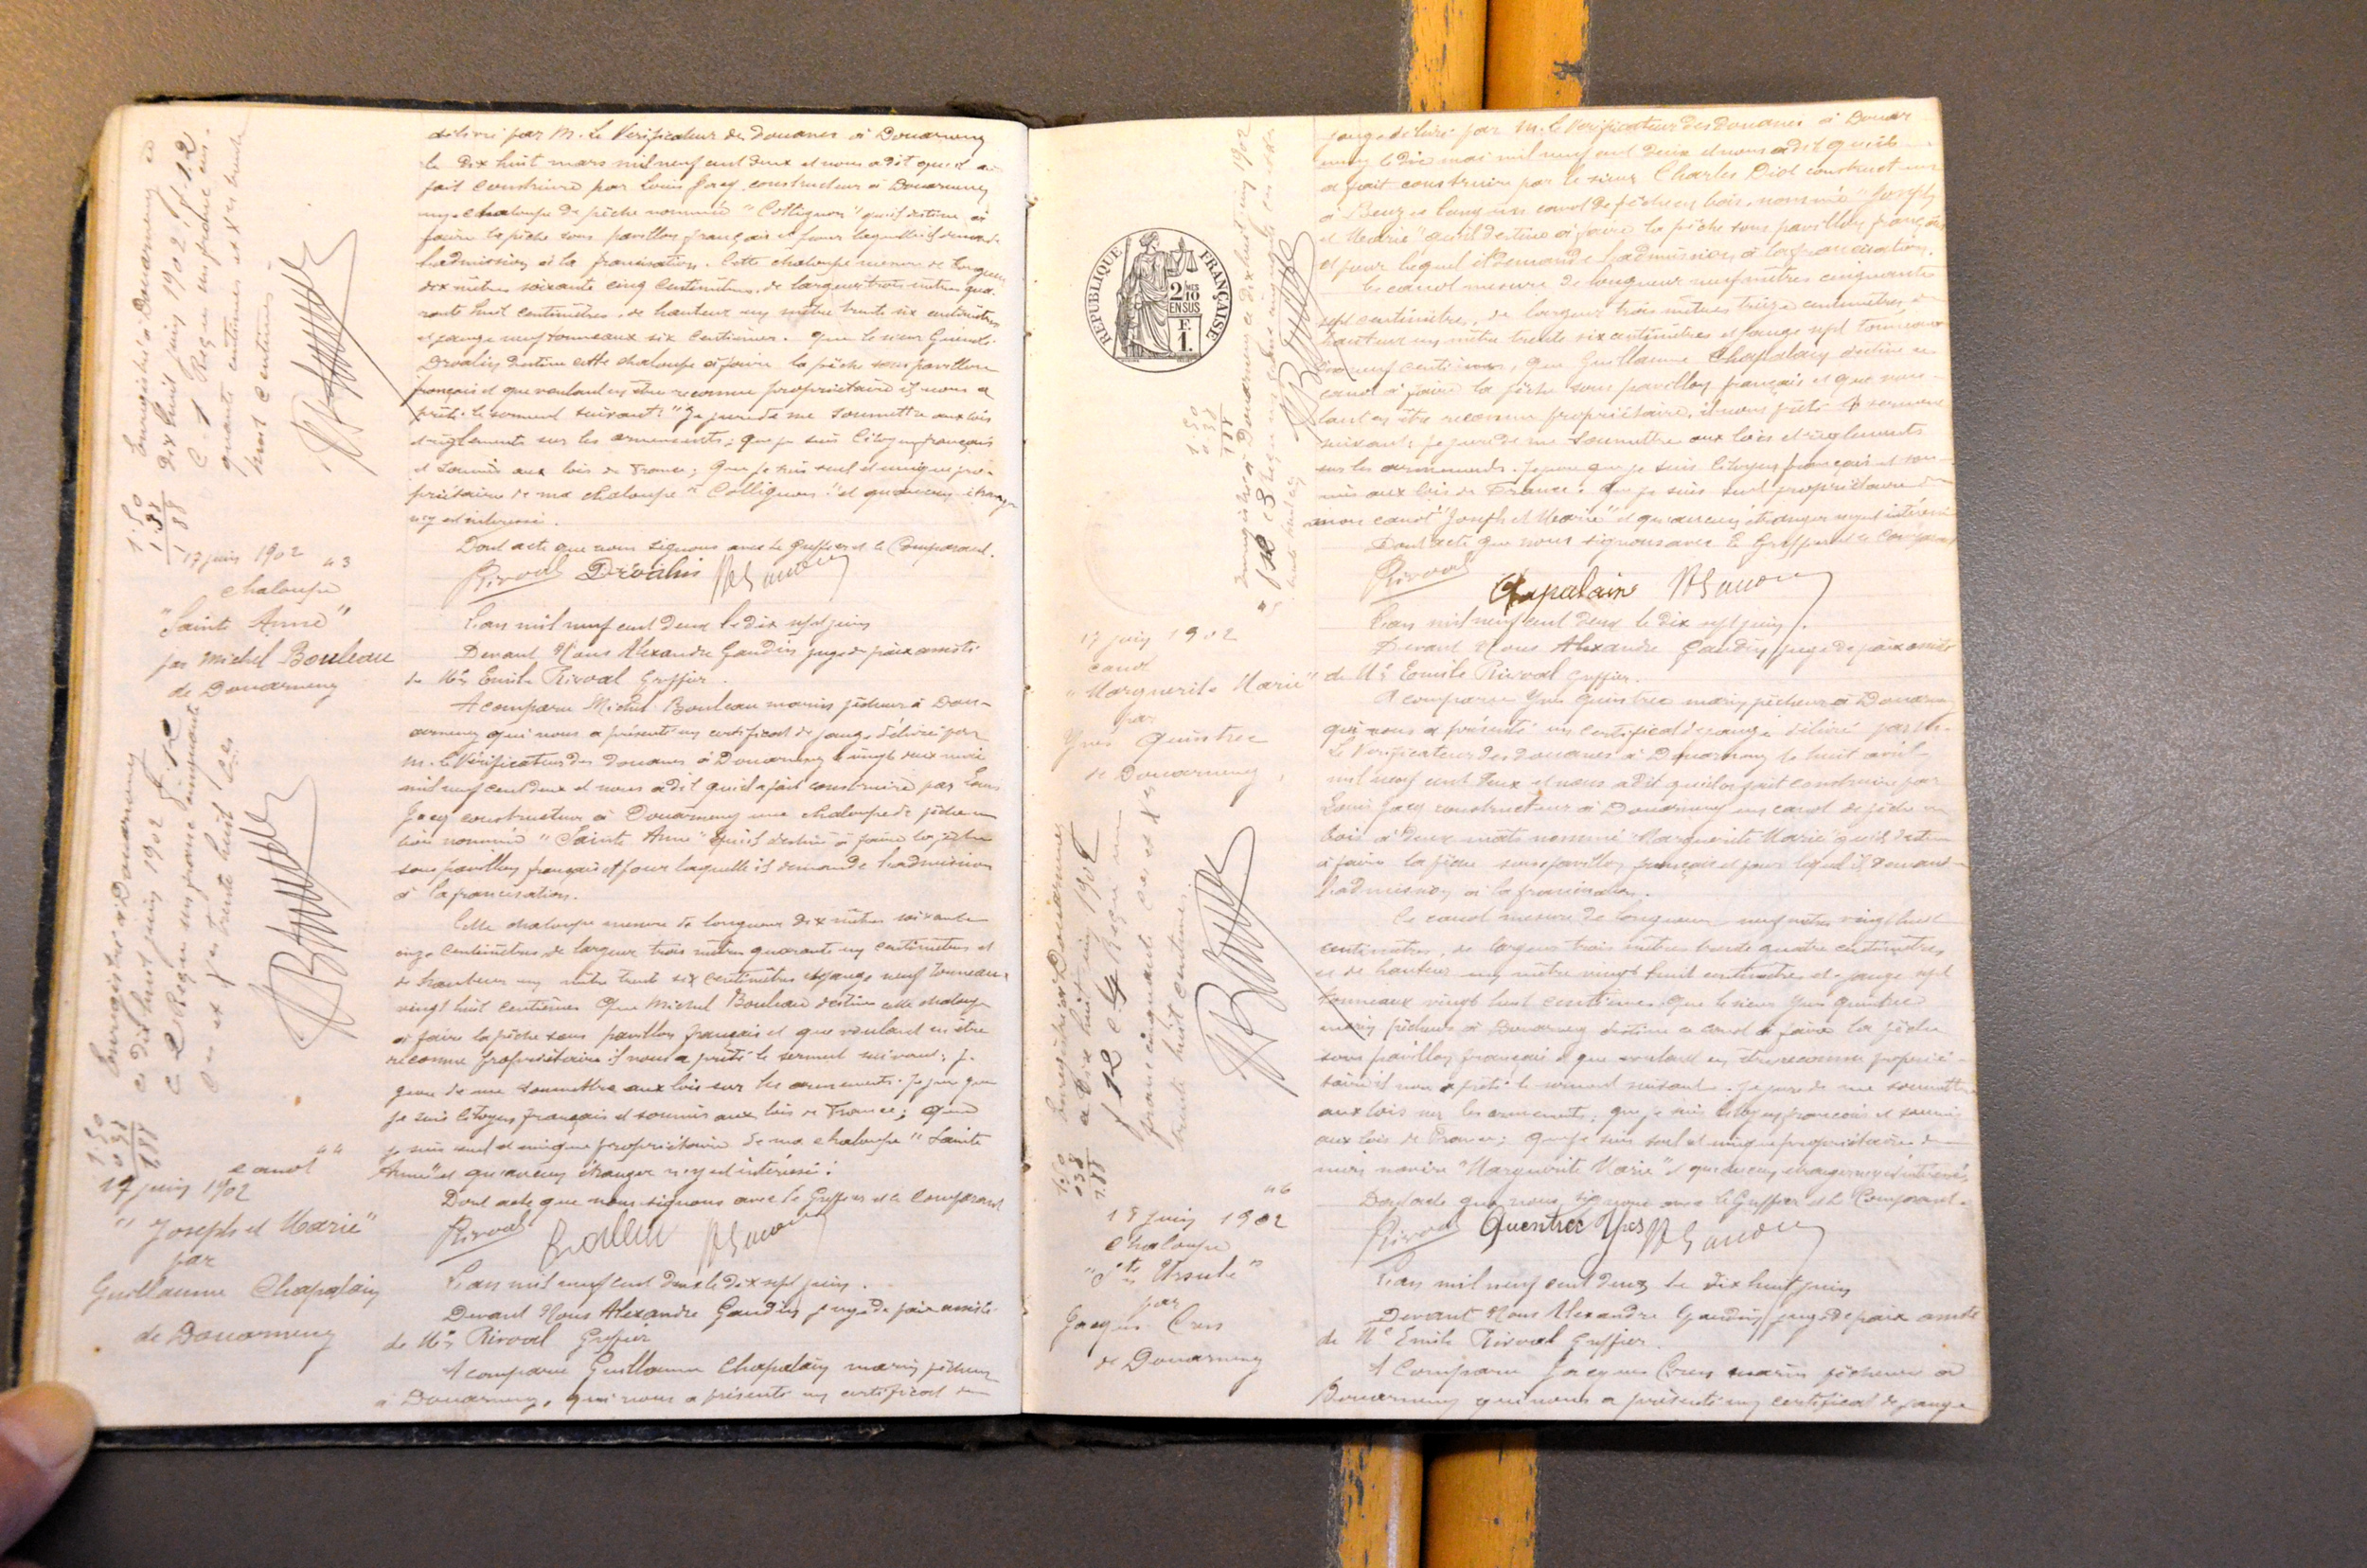 délivré par M. le Vérificateur des douanes à Douarnenez
le dix huit mars mil neuf cent deux et nous a dit qu'il a
fait construire par Louis Jacq constructeur à Douarnenez
une chaloupe de pêche nommée "Collignon" qu'il destine à
faire la pêche sous pavillon français et pour laquelle il demande
l'admission à la francisation. Cette chaloupe mesure de longueur
dix mètres soixante cinq centimètres, de largeur trois mètres qua-
rante huit centimètres, de hauteur un mètre trente six centimètres
et jauge neuf tonneaux six centièmes. Que le sieur
Drévalin destine cette chaloupe à faire la pêche sous pavillon
français et que voulant en être reconnu propriétaire il nous a
prêté le serment suivant: "Je jure de me soumettre aux lois
et règlements sur les armements; que je suis Citoyen français
et soumis aux lois de France; que je suis seul et unique pro-
priétaire de ma chaloupe "Collignon" et qu'aucun étranger
n'y est intéressé.
Dont acte que nous signons avec le Greffier et le Comparant.
Rivoal Drévalin AGaudin
L'an mil neuf cent deux le dix sept juin
Devant Nous Alexandre Gaudin juge de paix assisté
de Me Emile Rivoal Greffier.
A comparu Michel Bouleau marin pêcheur à Dou-
arnenez qui nous a présenté un certificat de jauge délivré par
M. le Vérificateur des douanes à Douarnenez le vingt deux mai
mil neuf cent deux et nous a dit qu'il a fait construire par Louis
Jacq constructeur à Douarnenez une chaloupe de pêche en
bois nommée "Sainte Anne" qu'il destine à faire la pêche
sous pavillon français et pour laquelle il demande l'admission
à la francisation.
Cette chaloupe mesure de longueur dix mètres soixante
onze centimètres, de largeur trois mètres quarante un centimètres et
de hauteur un mètre trente six centimètres et jauge neuf tonneaux
vingt huit centièmes Que Michel Bouleau destine cette chaloupe
à faire la pêche sous pavillon français et que voulant en être
reconnu propriétaire il nous a prêté le serment suivant: je
jure de me soumettre aux lois sur les armements. Je jure que
je suis Citoyen français et soumis aux lois de France; que
je suis seul et unique propriétaire de ma chaloupe "Sainte
Anne" et qu'aucun étranger n'y est intéressé.
Dont acte que nous signons avec le Greffier et le Comparant
Rivoal AGaudin
L'an mil neuf cent deux le dix sept juin.
Devant Nous Alexandre Gaudin juge de paix assisté
de Me Rivoal Greffier
A comparu Guillaume Chapalain marin pêcheur
à Douarnenez, qui nous a présenté un certificat de
Enregistré à Douarnenez ce
dix huit juin 1902, f 12
C 1 Reçu un franc cin-
quante centimes et Xes trente
huit centimes
1.50
38
1 88
17 juin 1902 43
Chaloupe
"Sainte Anne"
par Michel Bouleau
de Douarnenez
Enregistré à Douarnenez
ce dix huit juin 1902 f. 12
C. 2 Reçu un franc cinquante
Ces et Xes trente huit Ces
1.50
0 38
1.88
44
canot
17 juin 1902
"Joseph et Marie"
par
Guillaume Chapalain
de Douarnenez
jauge délivré par M. le Vérificateur des douanes à Douar
nenez le dix mai mil neuf cent deux et nous a dit qu'il
a fait construire par le sieur Charles Diot constructeur
à un canot de pêche en bois, nommé "Joseph
et Marie" qu'il destine à faire la pêche sous pavillon français
et pour lequel il demande l'admission à la francisation.
Ce canot mesure de longueur neuf mètres cinquante
sept centimètres, de largeur trois mètres treize centimètres, de
hauteur un mètre trente six centimètres et jauge sept tonneaux
neuf centièmes, Que Guillaume Chapalain destine ce
canot à faire la pêche sous pavillon français et que vou-
lant en être reconnu propriétaire, il nous prête le serment
suivant: je jure de me soumettre aux lois et règlements
sur les armements. Je jure que je suis Citoyen français et sou-
mis aux lois de France. Que je suis seul propriétaire de
mon canot "Joseph et Marie" et qu'aucun étranger n'y est intéressé
Dont acte que nous signons avec le Greffier et le Comparant
Rivoal Chapalain AGaudin
L'an mil neuf cent deux le dix sept juin.
Devant Nous Alexandre Gaudin juge de paix assisté
de Me Emile Rivoal Greffier.
A comparu Yves Quintrec marin pêcheur à Douarnenez
qui nous a présenté un certificat de jauge délivré par M.
le Vérificateur des douanes à Douarnenez le huit avril
mil neuf cent deux et nous a dit qu'il a fait construire par
Louis Jacq constructeur à Douarnenez un canot de pêche en
bois à deux mâts nommé "Marguerite Marie" qu'il destine
à faire la pêche sous pavillon français et pour lequel il demande
l'admission à la francisation.
Ce canot mesure de longueur neuf mètres vingt huit
centimètres, de largeur trois mètres trente quatre centimètres
et de hauteur un mètre vingt huit centimètres et jauge sept
tonneaux vingt huit centièmes. Que le sieur Yves Quintrec
marin pêcheur à Douarnenez destine ce canot à faire la pêche
sous pavillon français et que voulant en être reconnu proprié-
taire il nous a prêté le serment suivant. Je jure de me soumettre
aux lois sur les armements; que je suis citoyen français et soumis
aux lois de France; que je suis seul et unique propriétaire de
mon navire "Marguerite Marie" et qu'aucun étranger n'y est intéressé.
Dont acte que nous signons avec le Greffier et le Comparant.
Rivoal Quentrec Yves AGaudin
L'an mil neuf cent deux le dix huit juin
Devant Nous Alexandre Gaudin juge de paix assisté
de Me Emile Rivoal Greffier.
A Comparu Jacques Cren marin pêcheur à
Douarnenez qui nous a présenté un certificat de jauge
RÉPUBLIQUE FRANÇAISE
2/10MES
EN SUS
F.
1.
Enregistré à Douarnenez ce dix huit juin 1902
f 12 C 3 Reçu un franc cinquante ces et Xes
trente huit ces
1.50
0 38
1 88
17 juin 1902
canot
"Marguerite Marie"
par
Yves Quintrec
de Douarnenez
Enregistré à Douarnenez
ce dix huit juin 1902
f 12 C. 4 Reçu un
franc cinquante ces et Xes
trente huit centimes
1.50
0 38
1.88
46
18 juin 1902
Chaloupe
"Ste Ursule"
par
Jacques Cren
de Douarnenez